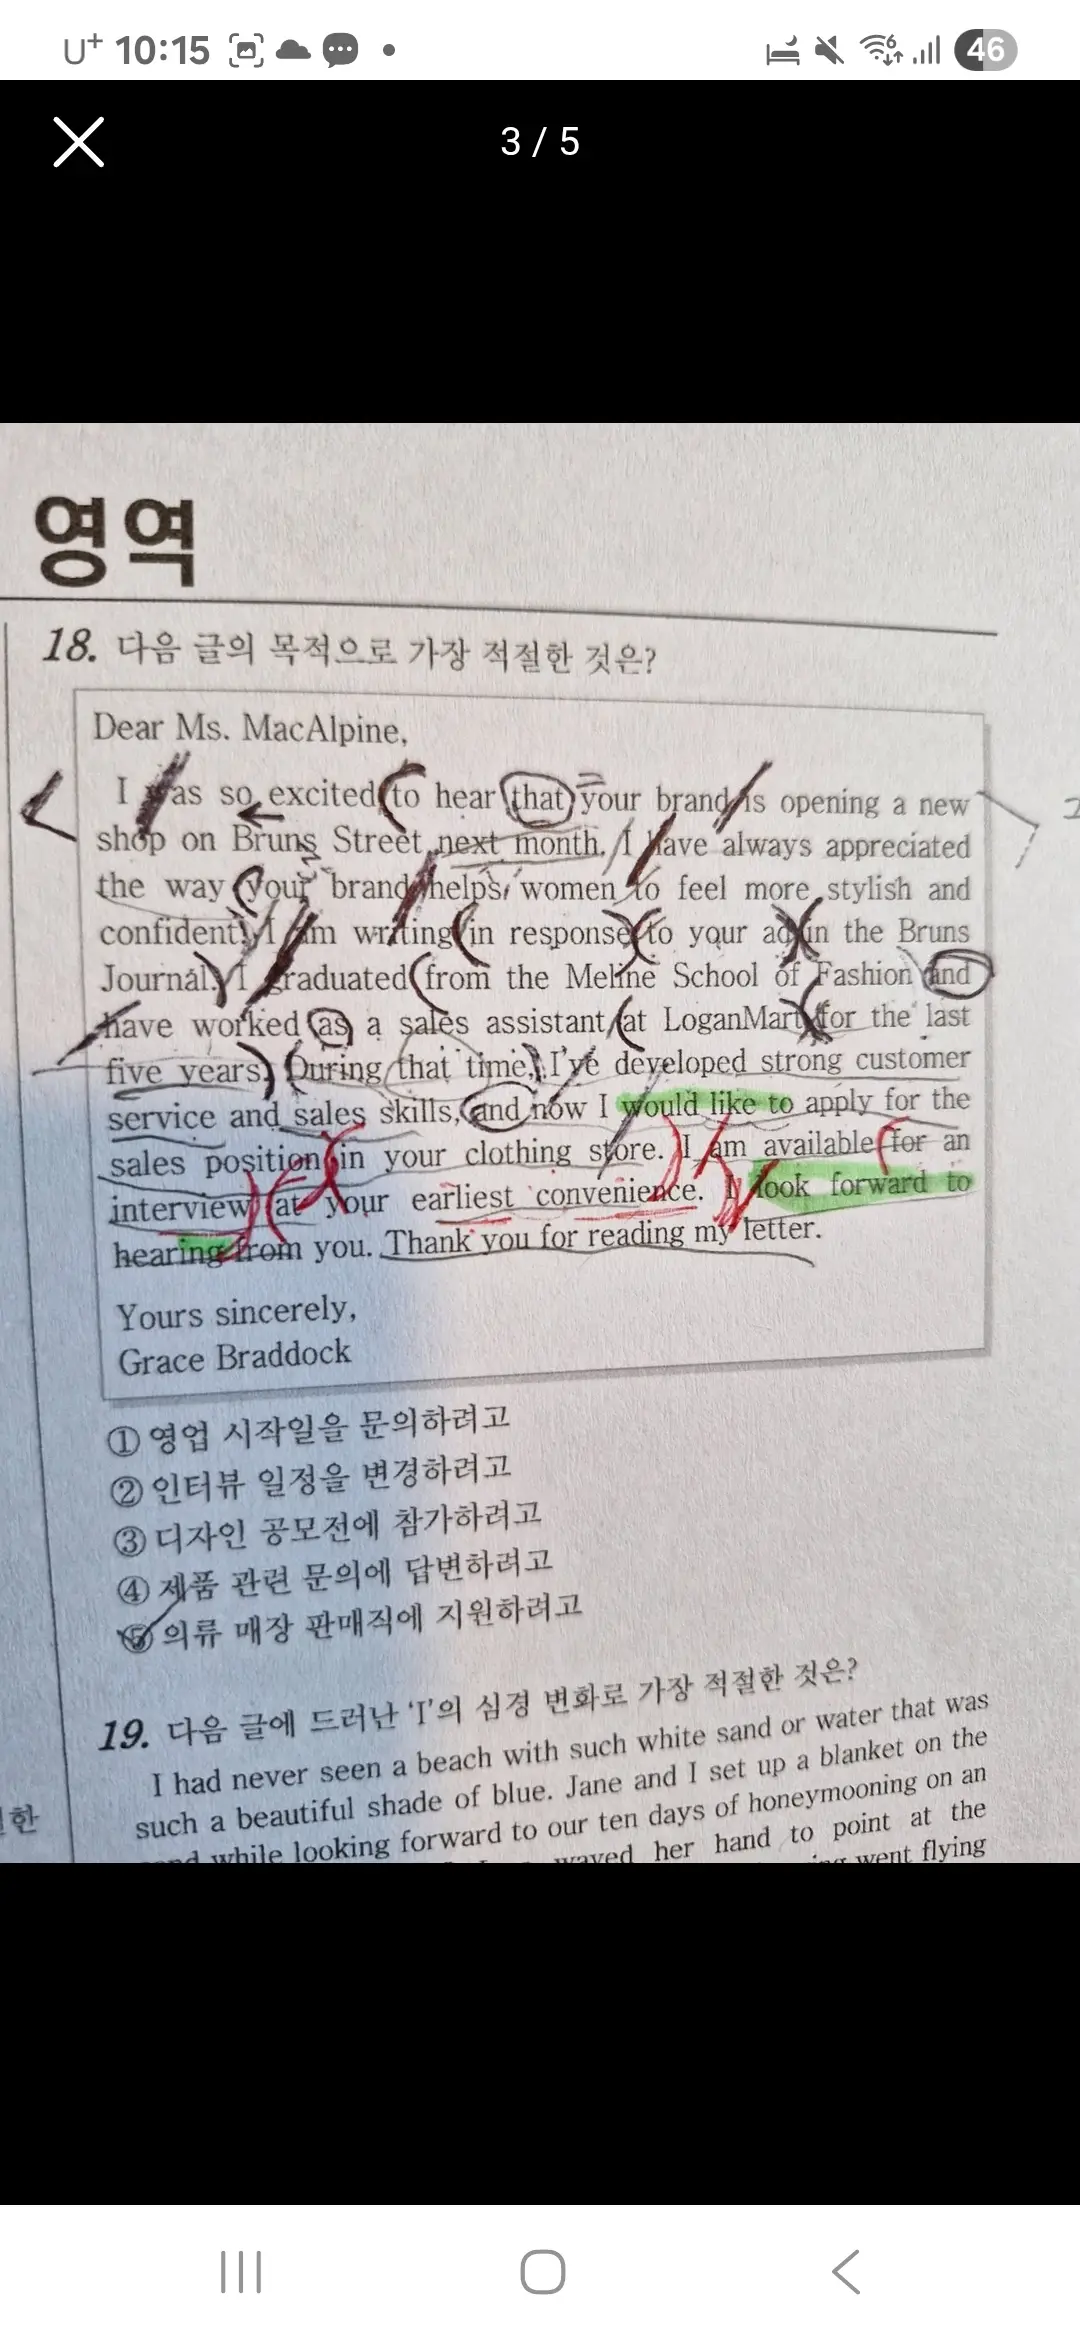 U+ 10:15
46
3 / 5
영역
18. 다음 글의 목적으로 가장 적절한 것은?
Dear Ms. MacAlpine,
I was so excited to hear that your brand is opening a new
shop on Bruns Street next month. I have always appreciated
the way your brand helps women to feel more stylish and
confident. I am writing in response to your ad in the Bruns
Journal. I graduated from the Meline School of Fashion and
have worked as a sales assistant at LoganMart for the last
five years. During that time, I've developed strong customer
service and sales skills, and now I would like to apply for the
sales position in your clothing store. I am available for an
interview at your earliest convenience. I look forward to
hearing from you. Thank you for reading my letter.
Yours sincerely,
Grace Braddock
① 영업 시작일을 문의하려고
② 인터뷰 일정을 변경하려고
③ 디자인 공모전에 참가하려고
④ 제품 관련 문의에 답변하려고
⑤ 의류 매장 판매직에 지원하려고
19. 다음 글에 드러난 'I'의 심경 변화로 가장 적절한 것은?
I had never seen a beach with such white sand or water that was
such a beautiful shade of blue. Jane and I set up a blanket on the
while looking forward to our ten days of honeymooning on an
waved her hand to point at the
went flying
한